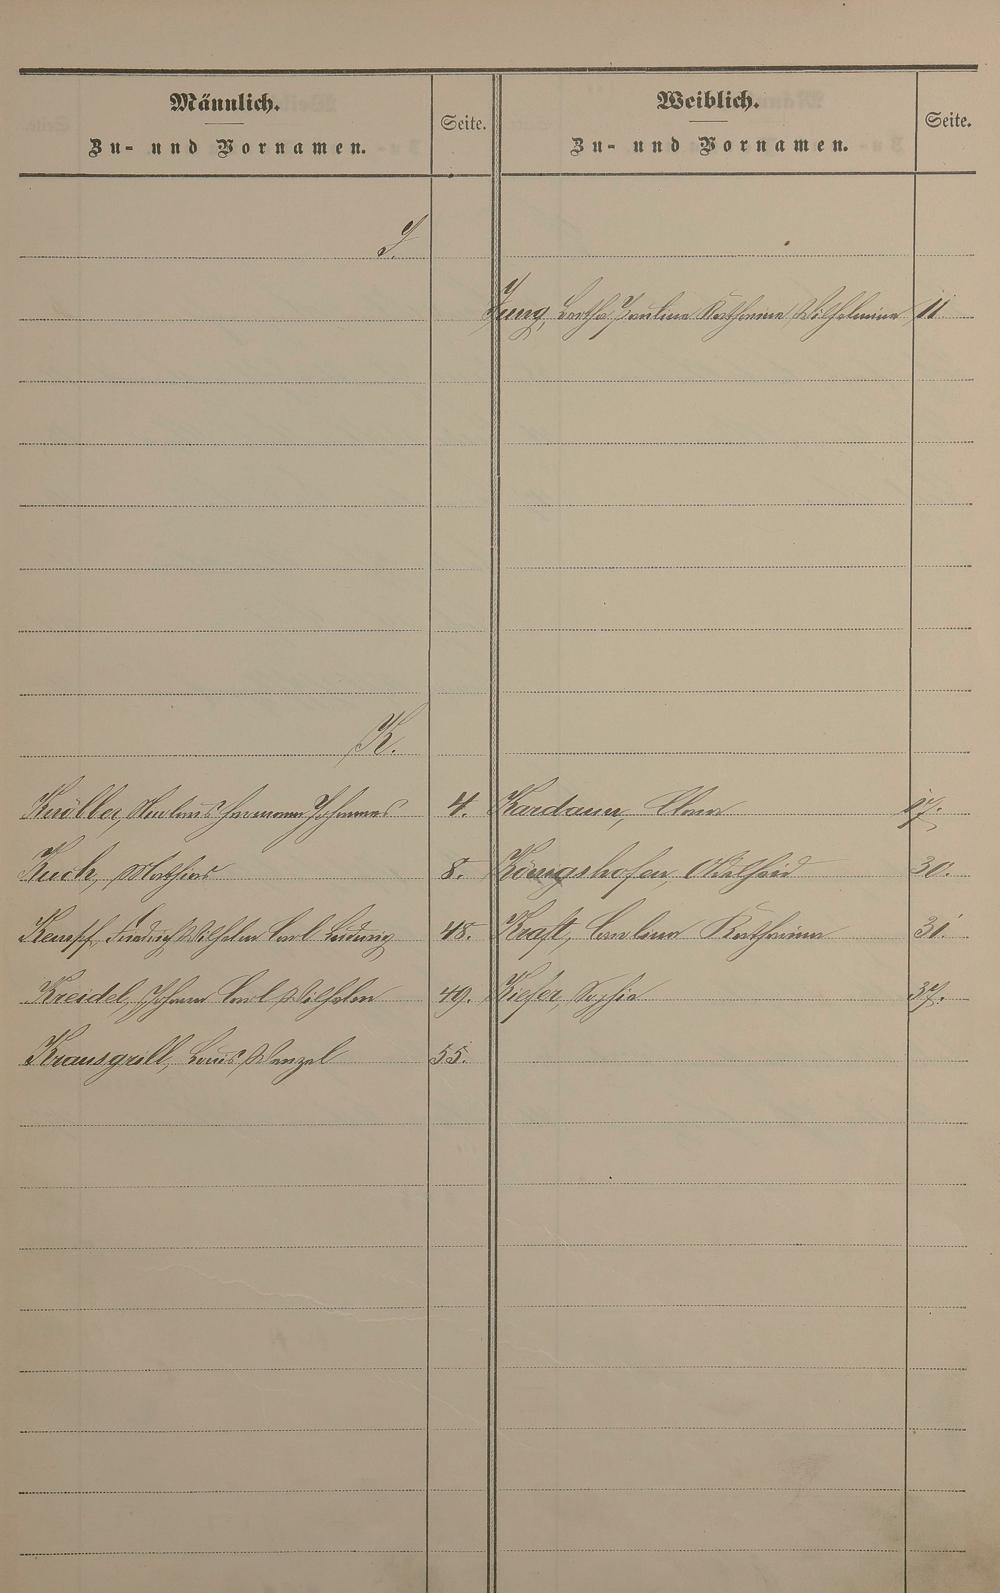 Männlich.
Zu- und Vornamen.
Seite.
Weiblich.
Zu- und Vornamen.
Seite.
J.
Jung, Bertha Pauline Katharine Wilhelmine 11
K.
Knöller, Hermann Johannes 4.
Kardauer, Clara 17.
Kuch, Mathias 8.
Königshofen, Adelheid 30.
Kempf, Friedrich Wilhelm Carl Ludwig 48.
Kraft, Carolina Katharina 31.
Kreidel, Johann Carl Wilhelm 49.
Kiefer, Sophie 37.
Krausgrill, Louis Wenzel 55.